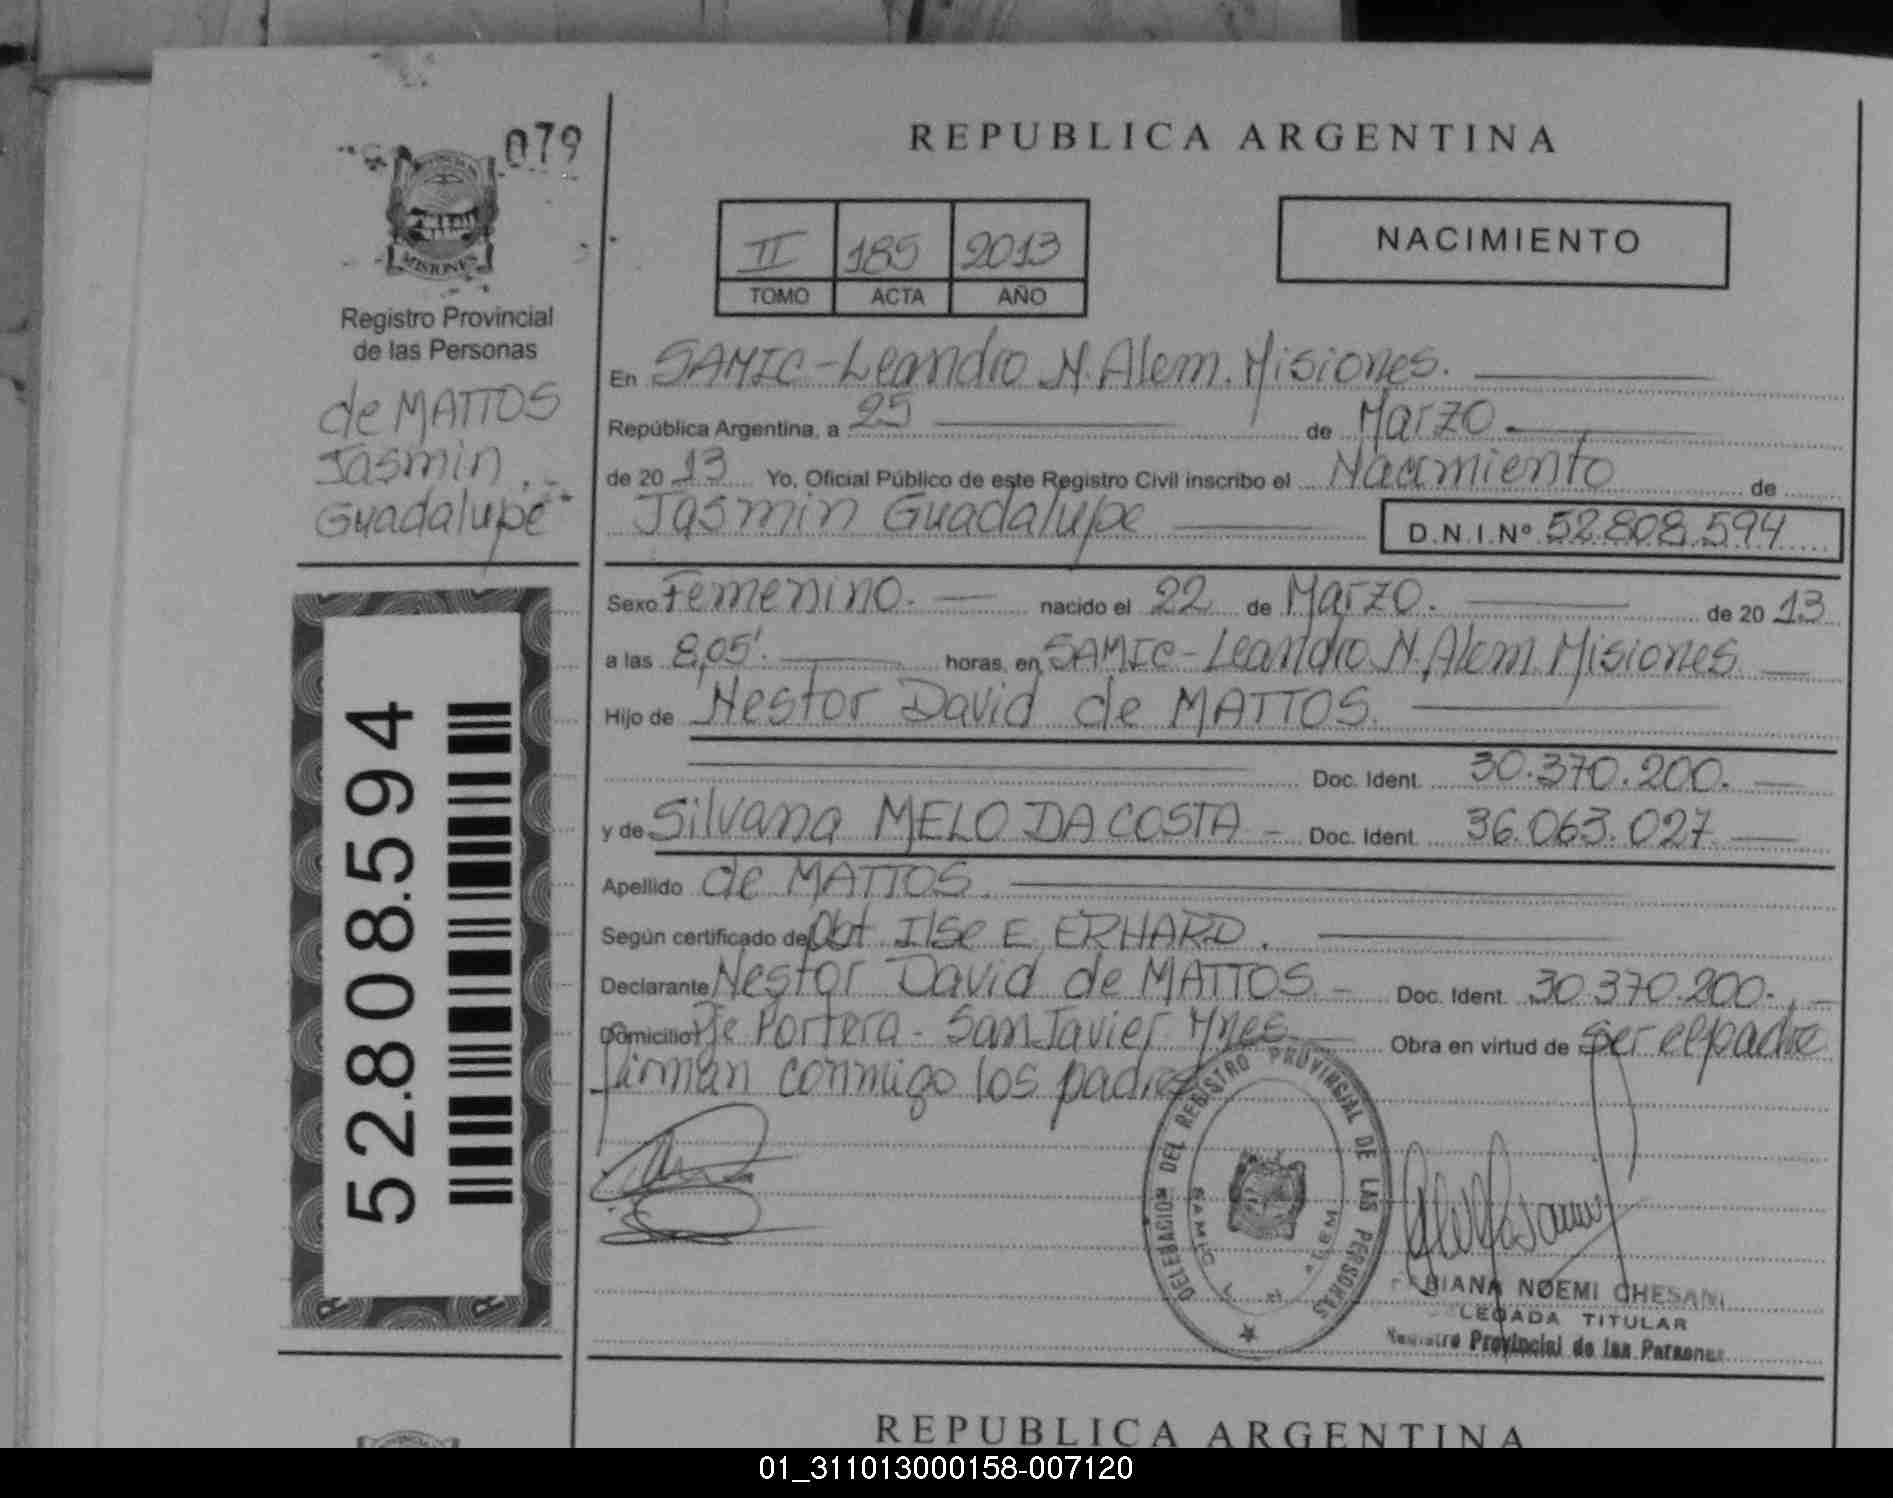 079
MISIONES
Registro Provincial
de las Personas
de MATTOS
Jasmin
Guadalupe
52.808.594
REPUBLICA ARGENTINA
II 185 2013
TOMO ACTA AÑO
NACIMIENTO
En SAMIC-Leandro N. Alem. Misiones.
República Argentina, a 25 de Marzo.
de 20 13 Yo, Oficial Público de este Registro Civil inscribo el Nacimiento de
Jasmin Guadalupe D.N.I.Nº 52.808.594
Sexo Femenino. nacido el 22 de Marzo. de 20 13
a las 8,05'. horas, en SAMIC-Leandro N. Alem. Misiones
Hijo de Nestor David de MATTOS.
Doc. Ident. 30.370.200.
y de Silvana MELO DA COSTA - Doc. Ident. 36.063.027
Apellido de MATTOS.
Según certificado de Obt Ilse E. ERHARD.
Declarante Nestor David de MATTOS - Doc. Ident. 30.370.200.
Domicilio Pje Portera - San Javier Mnes Obra en virtud de ser el padre
firman conmigo los padres
DELEGACION DEL REGISTRO PROVINCIAL DE LAS PERSONAS
SAMIC L. N. ALEM
NOEMI CHESANI
TITULAR
Registro Provincial de las Personas
REPUBLICA ARGENTINA
01_311013000158-007120